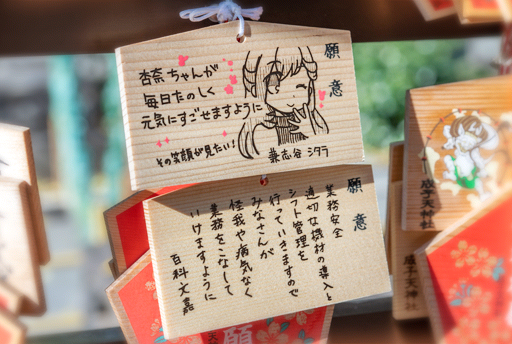 願意
杏奈ちゃんが
毎日たのしく
元気にすごせますように
その笑顔が見たい!
兼志谷 シタラ
願意
業務安全
適切な機材の導入と
シフト管理を
行っていきますので
みなさんが
怪我や病気なく
業務をこなして
いけますように
百科文嘉
成子天神社
成子天神社
願